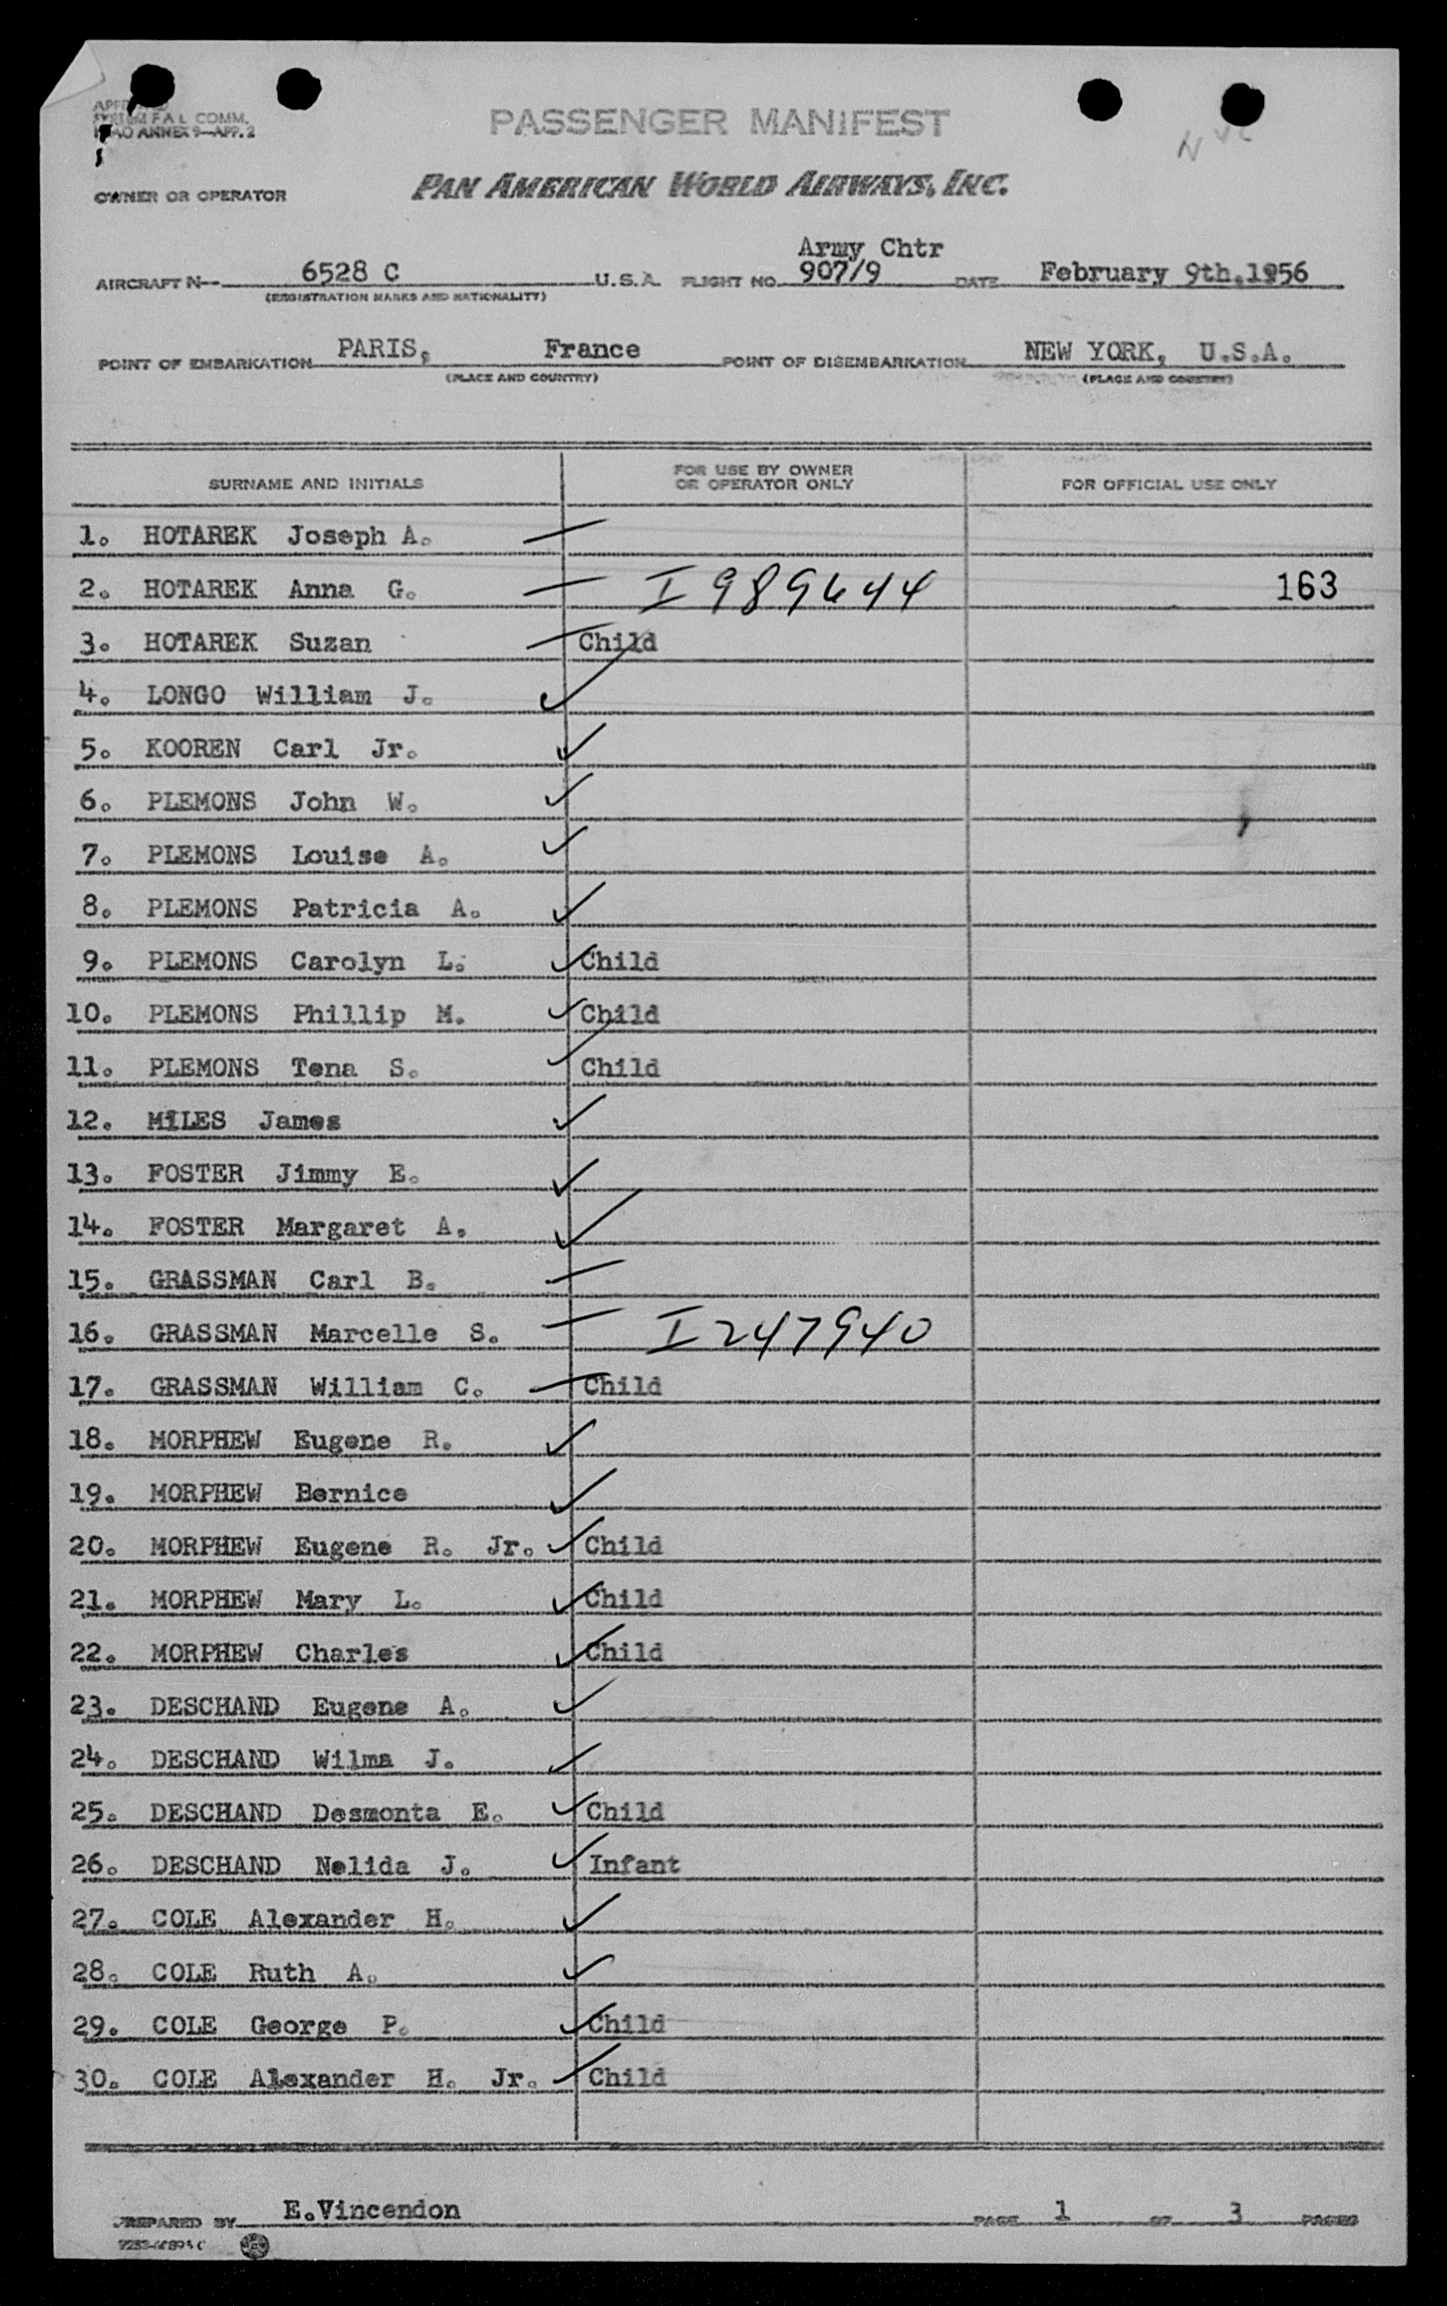 SYSTEM F A L COMM.
ICAO ANNEX 9—APP. 2
PASSENGER MANIFEST
NYC
OWNER OR OPERATOR PAN AMERICAN WORLD AIRWAYS, INC.
Army Chtr
AIRCRAFT N- 6528 C U.S.A. FLIGHT NO. 907/9 DATE February 9th,1956
(REGISTRATION MARKS AND NATIONALITY)
POINT OF EMBARKATION PARIS, France POINT OF DISEMBARKATION NEW YORK, U.S.A.
(PLACE AND COUNTRY) (PLACE AND COUNTRY)
SURNAME AND INITIALS FOR USE BY OWNER OR OPERATOR ONLY FOR OFFICIAL USE ONLY
1. HOTAREK Joseph A. —
2. HOTAREK Anna G. — I 989644 163
3. HOTAREK Suzan — Child
4. LONGO William J. ✓
5. KOOREN Carl Jr. ✓
6. PLEMONS John W. ✓
7. PLEMONS Louise A. ✓
8. PLEMONS Patricia A. ✓
9. PLEMONS Carolyn L. ✓ Child
10. PLEMONS Phillip M. ✓ Child
11. PLEMONS Tena S. ✓ Child
12. MILES James ✓
13. FOSTER Jimmy E. ✓
14. FOSTER Margaret A. ✓
15. GRASSMAN Carl B. —
16. GRASSMAN Marcelle S. — I 247940
17. GRASSMAN William C. — Child
18. MORPHEW Eugene R. ✓
19. MORPHEW Bernice ✓
20. MORPHEW Eugene R. Jr. ✓ Child
21. MORPHEW Mary L. ✓ Child
22. MORPHEW Charles ✓ Child
23. DESCHAND Eugene A. ✓
24. DESCHAND Wilma J. ✓
25. DESCHAND Desmonta E. ✓ Child
26. DESCHAND Nelida J. ✓ Infant
27. COLE Alexander H. ✓
28. COLE Ruth A. ✓
29. COLE George P. ✓ Child
30. COLE Alexander H. Jr. ✓ Child
PREPARED BY E.Vincendon PAGE 1 OF 3 PAGES